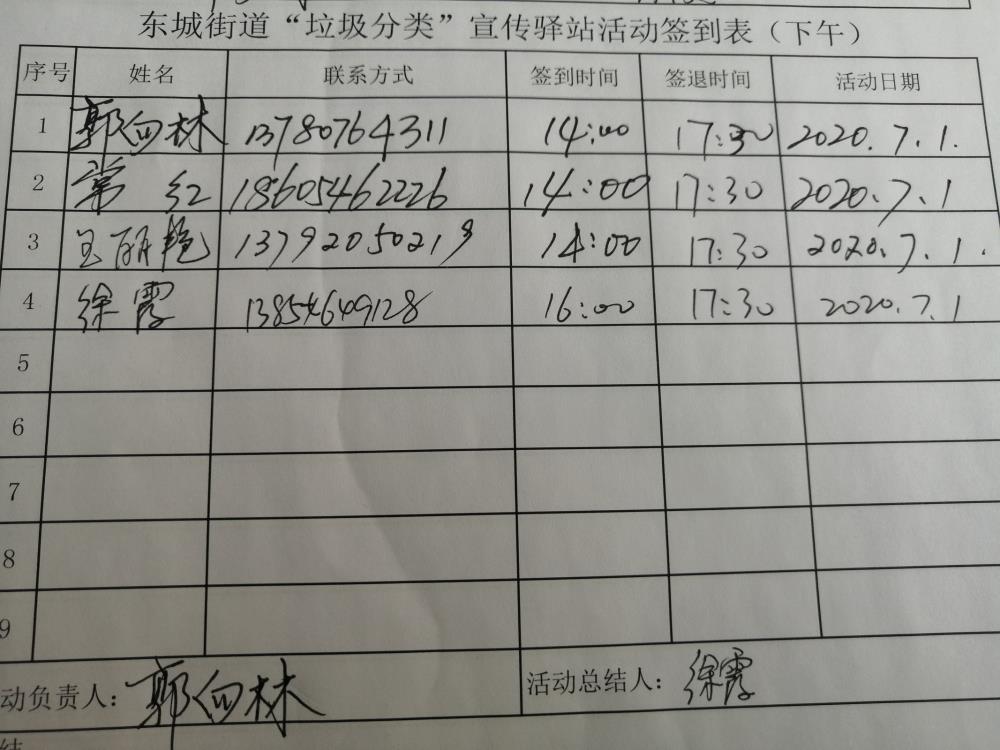 东城街道“垃圾分类”宣传驿站活动签到表（下午）
序号 姓名 联系方式 签到时间 签退时间 活动日期
1 郭向林 13780764311 14:00 17:30 2020.7.1.
2 常红 18605462226 14:00 17:30 2020.7.1
3 王丽艳 13792050219 14:00 17:30 2020.7.1.
4 徐霞 13854649128 16:00 17:30 2020.7.1
5
6
7
8
9
动负责人：郭向林 活动总结人：徐霞
结